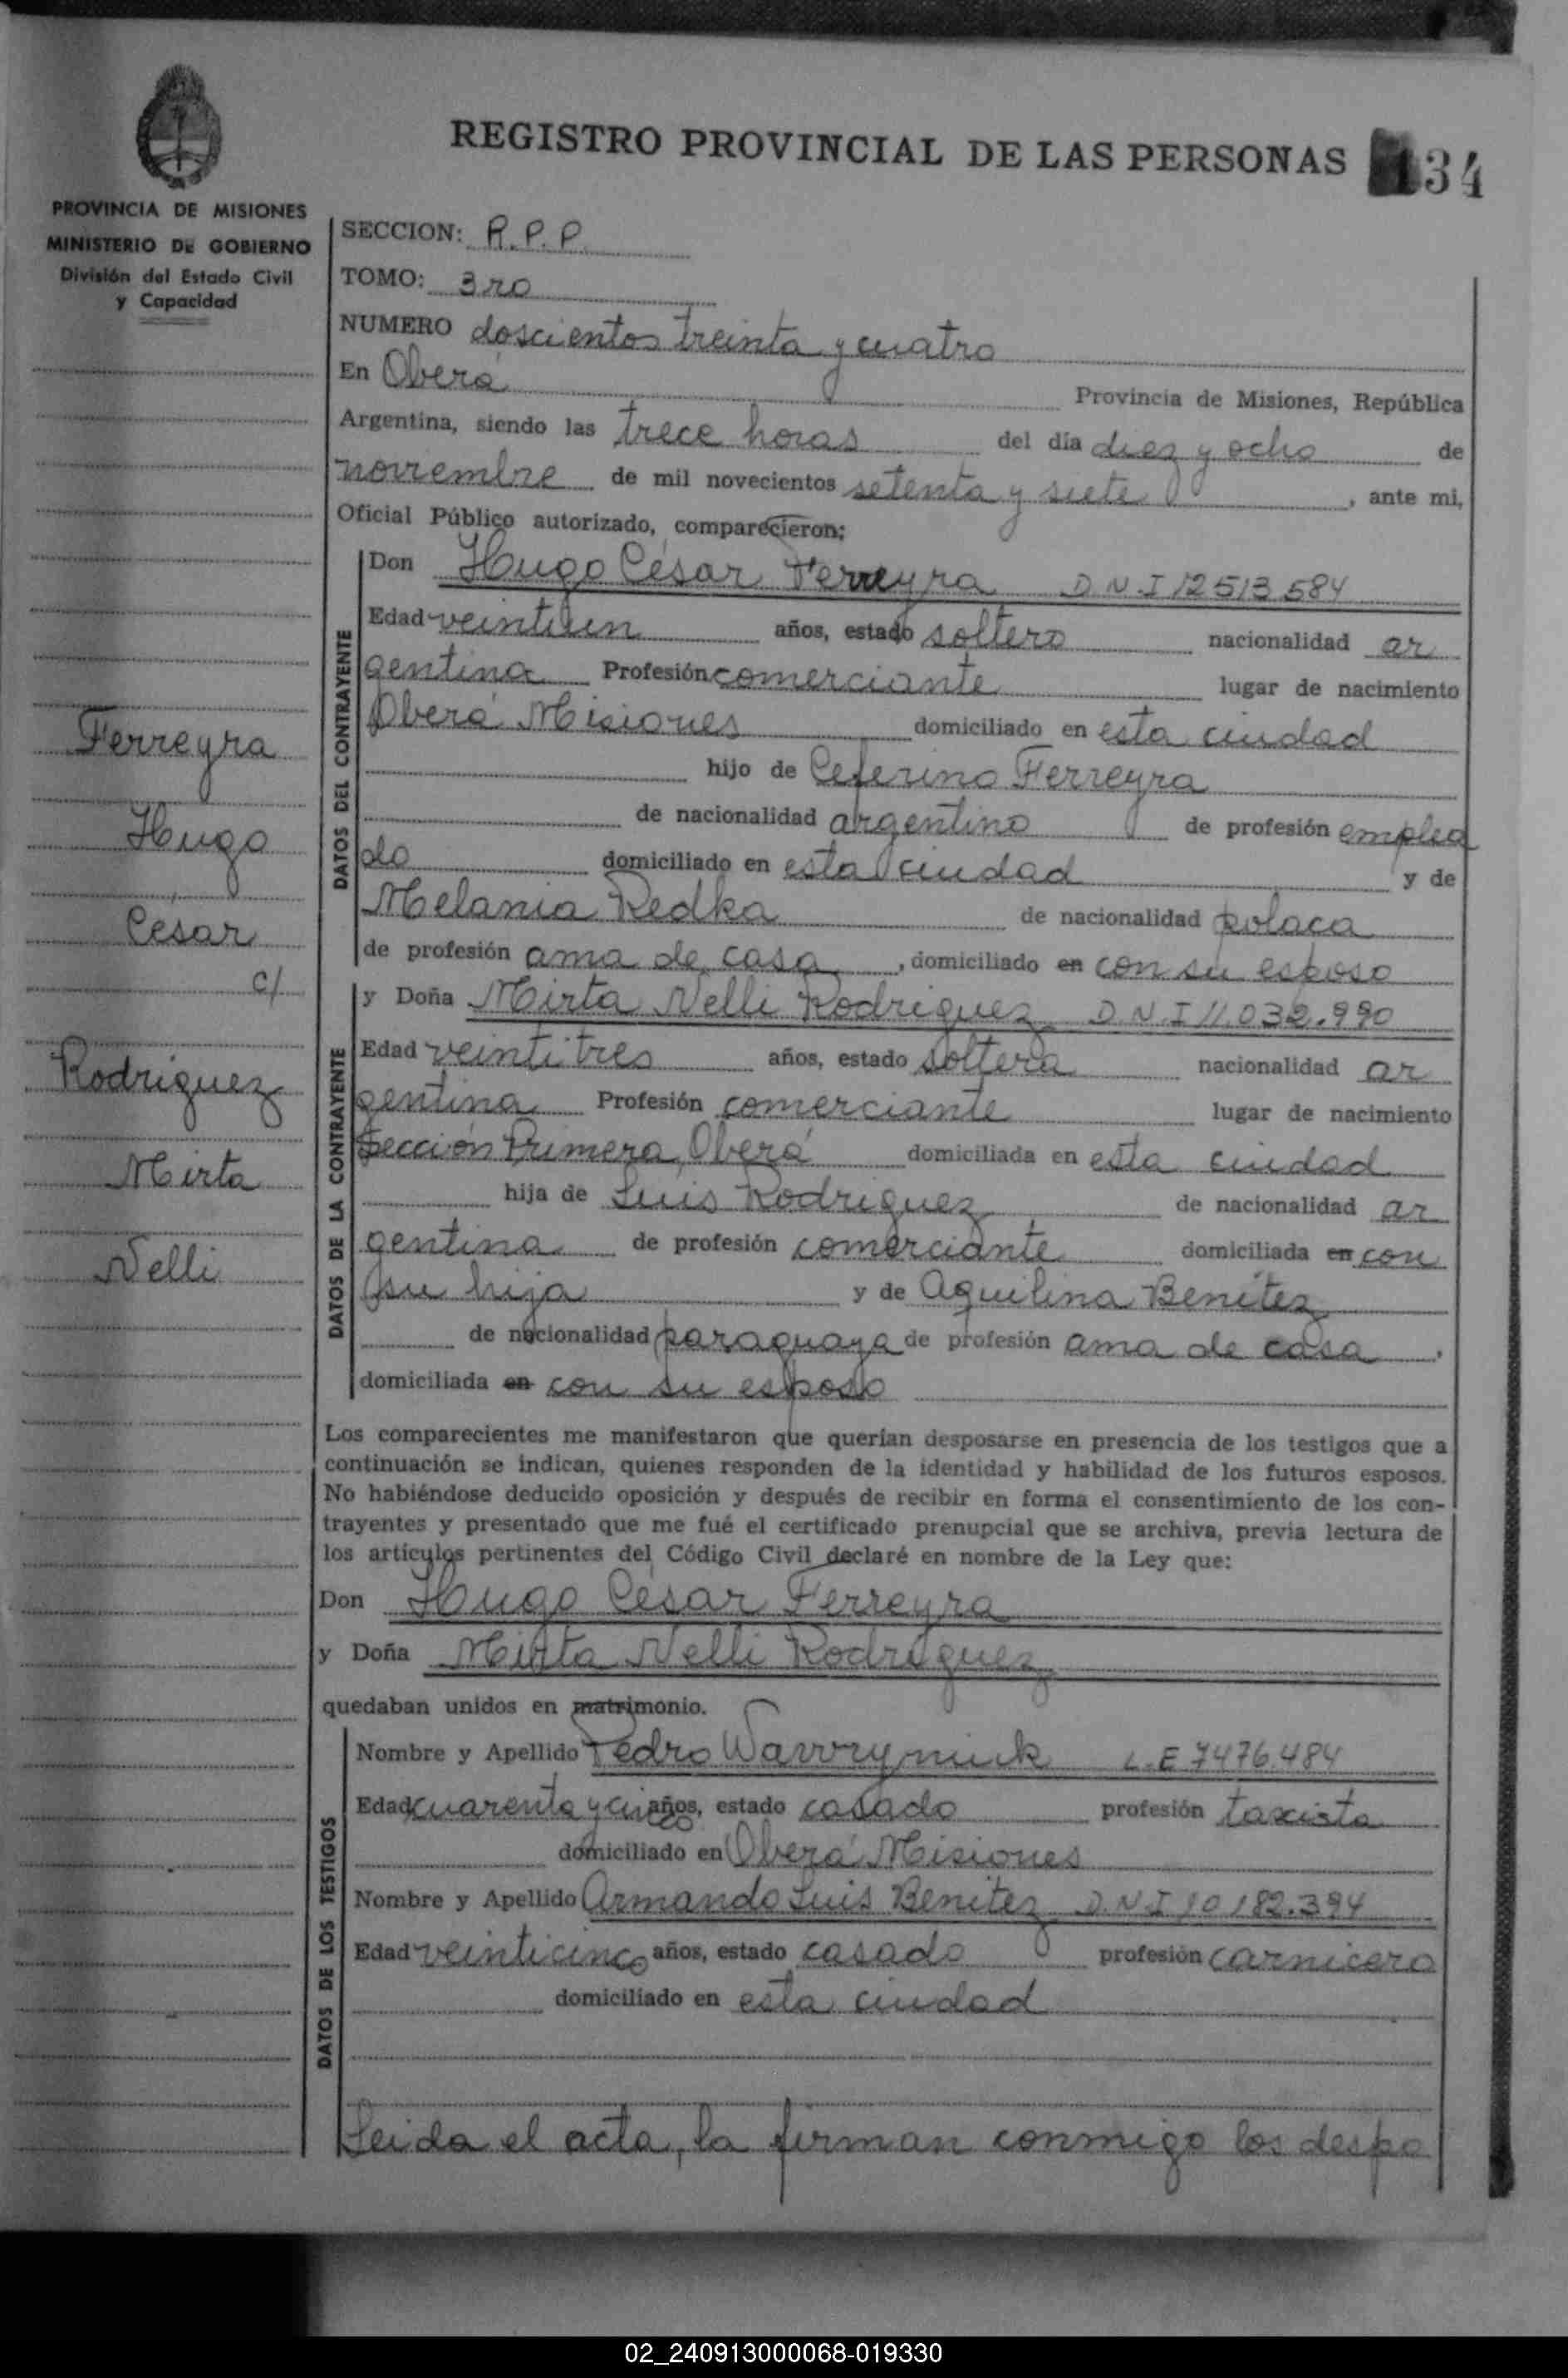 REGISTRO PROVINCIAL DE LAS PERSONAS 134
PROVINCIA DE MISIONES
MINISTERIO DE GOBIERNO
División del Estado Civil
y Capacidad
Ferreyra
Hugo
César
c/
Rodriguez
Mirta
Nelli
SECCION: R.P.P.
TOMO: 3ro
NUMERO doscientos treinta y cuatro
En Oberá Provincia de Misiones, República
Argentina, siendo las trece horas del día diez y ocho de
noviembre de mil novecientos setenta y siete, ante mi,
Oficial Público autorizado, comparecieron:
DATOS DEL CONTRAYENTE
Don Hugo César Ferreyra D.N.I 12513.584
Edad veintiun años, estado soltero nacionalidad ar
gentina Profesión comerciante lugar de nacimiento
Oberá Misiones domiciliado en esta ciudad
hijo de Ceferino Ferreyra
de nacionalidad argentino de profesión emplea
do domiciliado en esta ciudad y de
Melania Redka de nacionalidad polaca
de profesión ama de casa, domiciliado en con su esposo
DATOS DE LA CONTRAYENTE
y Doña Mirta Nelli Rodriguez D.N.I 11.032.990
Edad veintitres años, estado soltera nacionalidad ar
gentina Profesión comerciante lugar de nacimiento
Sección Primera, Oberá domiciliada en esta ciudad
hija de Luis Rodriguez de nacionalidad ar
gentina de profesión comerciante domiciliada en con
su hija y de Aquilina Benitez
de nacionalidad paraguaya de profesión ama de casa,
domiciliada en con su esposo
Los comparecientes me manifestaron que querían desposarse en presencia de los testigos que a
continuación se indican, quienes responden de la identidad y habilidad de los futuros esposos.
No habiéndose deducido oposición y después de recibir en forma el consentimiento de los con-
trayentes y presentado que me fué el certificado prenupcial que se archiva, previa lectura de
los artículos pertinentes del Código Civil declaré en nombre de la Ley que:
Don Hugo César Ferreyra
y Doña Mirta Nelli Rodriguez
quedaban unidos en matrimonio.
DATOS DE LOS TESTIGOS
Nombre y Apellido Pedro L.E 7476.484
Edad cuarenta y cinco años, estado casado profesión taxista
domiciliado en Oberá Misiones
Nombre y Apellido Armando Luis Benitez D.N.I 10182.394
Edad veinticinco años, estado casado profesión carnicero
domiciliado en esta ciudad
Leida el acta, la firman conmigo los despo
02_240913000068-019330